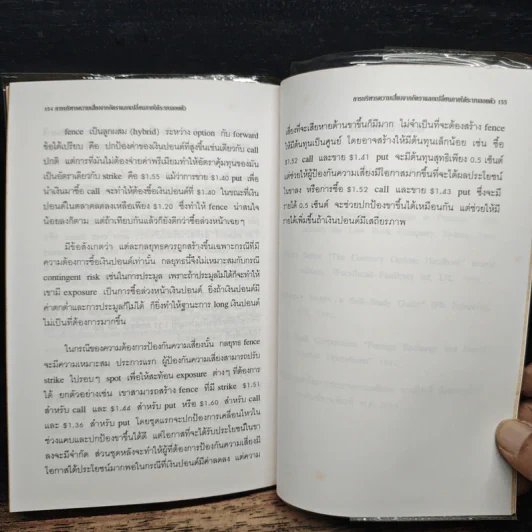 154 การบริหารความเสี่ยงจากอัตราแลกเปลี่ยนภายใต้ระบบลอยตัว
fence เป็นลูกผสม (hybrid) ระหว่าง option กับ forward
ข้อได้เปรียบ คือ ปกป้องค่าของเงินปอนด์ที่สูงขึ้นเช่นเดียวกับ call
ปกติ แต่การที่มันไม่ต้องจ่ายค่าพรีเมียมทำให้อัตราคุ้มทุนของมัน
เป็นอัตราเดียวกับ strike คือ $1.55 แม้ว่าการขาย $1.40 put เพื่อ
นำเงินมาซื้อ call จะทำให้ต้องซื้อเงินปอนด์ที่ $1.40 ในขณะที่เงิน
ปอนด์ในตลาดลดลงเหลือเพียง $1.20 ซึ่งทำให้ fence น่าสนใจ
น้อยลงก็ตาม แต่ถ้าเทียบกันแล้วก็ยังดีกว่าซื้อล่วงหน้าเฉยๆ
มีข้อสังเกตว่า แต่ละกลยุทธควรถูกสร้างขึ้นเฉพาะกรณีที่มี
ความต้องการซื้อเงินปอนด์เท่านั้น กลยุทธนี้จึงไม่เหมาะสมกับกรณี
contingent risk เช่นในการประมูล เพราะถ้าประมูลไม่ได้ก็จะทำให้
เขามี exposure เป็นการซื้อล่วงหน้าเงินปอนด์ ยิ่งถ้าเงินปอนด์มี
ค่าตกต่ำและการประมูลก็ไม่ได้ ก็ยิ่งทำให้ฐานะการ long เงินปอนด์
ไม่เป็นที่ต้องการมากขึ้น
ในกรณีของความต้องการป้องกันความเสี่ยงนั้น กลยุทธ fence
จะมีความเหมาะสม ประการแรก ผู้ป้องกันความเสี่ยงสามารถปรับ
strike ไปรอบๆ spot เพื่อให้สะท้อน exposure ต่างๆ ที่ต้องการ
ได้ ยกตัวอย่างเช่น เขาสามารถสร้าง fence ที่มี strike $1.51
สำหรับ call และ $1.46 สำหรับ put หรือ $1.60 สำหรับ call
และ $1.36 สำหรับ put โดยชุดแรกจะปกป้องการเคลื่อนไหวใน
ช่วงแคบและปกป้องขาขึ้นได้ดี แต่โอกาสที่จะได้รับประโยชน์ในขา
ลงจะมีจำกัด ส่วนชุดหลังจะทำให้ผู้ที่ต้องการป้องกันความเสี่ยงมี
โอกาสได้ประโยชน์มากพอในกรณีที่เงินปอนด์มีค่าลดลง แต่ความ
การบริหารความเสี่ยงจากอัตราแลกเปลี่ยนภายใต้ระบบลอยตัว 155
เสี่ยงที่จะเสียหายด้านขาขึ้นก็มีมาก ไม่จำเป็นที่จะต้องสร้าง fence
ให้มีต้นทุนเป็นศูนย์ โดยอาจสร้างให้มีต้นทุนเล็กน้อย เช่น ซื้อ
$1.52 call และขาย $1.41 put จะมีต้นทุนสุทธิเพียง 0.5 เซ็นต์
แต่ช่วยให้ผู้ป้องกันความเสี่ยงมีโอกาสมากขึ้นที่จะได้ผลประโยชน์
ในขาลง หรือการซื้อ $1.52 call และขาย $1.43 put ซึ่งจะมี
รายได้ 0.5 เซ็นต์ จะช่วยปกป้องขาขึ้นได้เหมือนกัน แต่ช่วยให้มี
รายได้เพิ่มขึ้นถ้าเงินปอนด์มีเสถียรภาพ